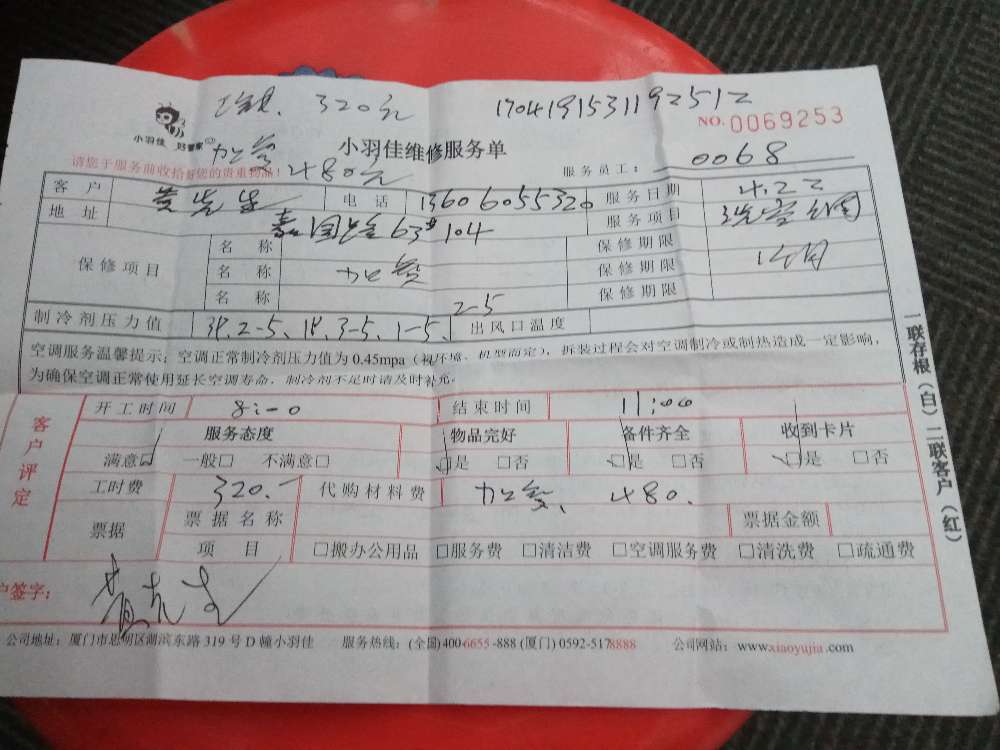 工费. 320元 1704191531192512
小羽佳 好管家 NO.0069253
加氟 小羽佳维修服务单
请您于服务前收拾好您的贵重物品! 480元 服务员工: 0068
客户 黄先生 电话 13606055320 服务日期 4.22
地址 嘉园路63#104 服务项目 洗空调
保修项目 名称 保修期限
名称 加氟 保修期限 1个月
名称 保修期限
2-5
制冷剂压力值 3P.2-5、1P.3-5、1-5、 出风口温度
空调服务温馨提示:空调正常制冷剂压力值为0.45mpa(视环境、机型而定),拆装过程会对空调制冷或制热造成一定影响,
为确保空调正常使用延长空调寿命,制冷剂不足时请及时补充。
客户评定
开工时间 8:00 结束时间 11:00
服务态度 物品完好 备件齐全 收到卡片
满意□ 一般□ 不满意□ □是 □否 □是 □否 □是 □否
工时费 320.- 代购材料费 加氟、480.
票据 票据名称 票据金额
项目 □搬办公用品 □服务费 □清洁费 □空调服务费 □清洗费 □疏通费
户签字: 黄先生
公司地址:厦门市思明区湖滨东路319号D幢小羽佳 服务热线:(全国)400-6655-888 (厦门)0592-5178888 公司网站:www.xiaoyujia.com
一联存根(白)二联客户(红)